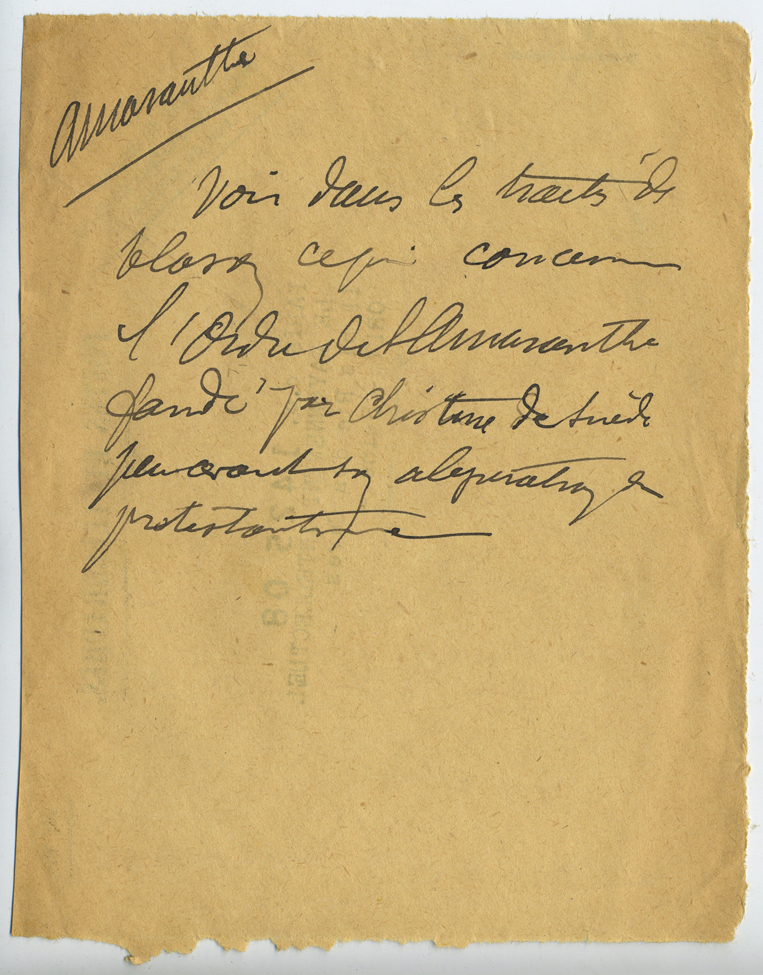 Amaranthe
Voir dans les traités de
blason ce qui concerne
l'Ordre de l'Amaranthe
fondé par Christine de Suède
peu avant son abjuration du
protestantisme